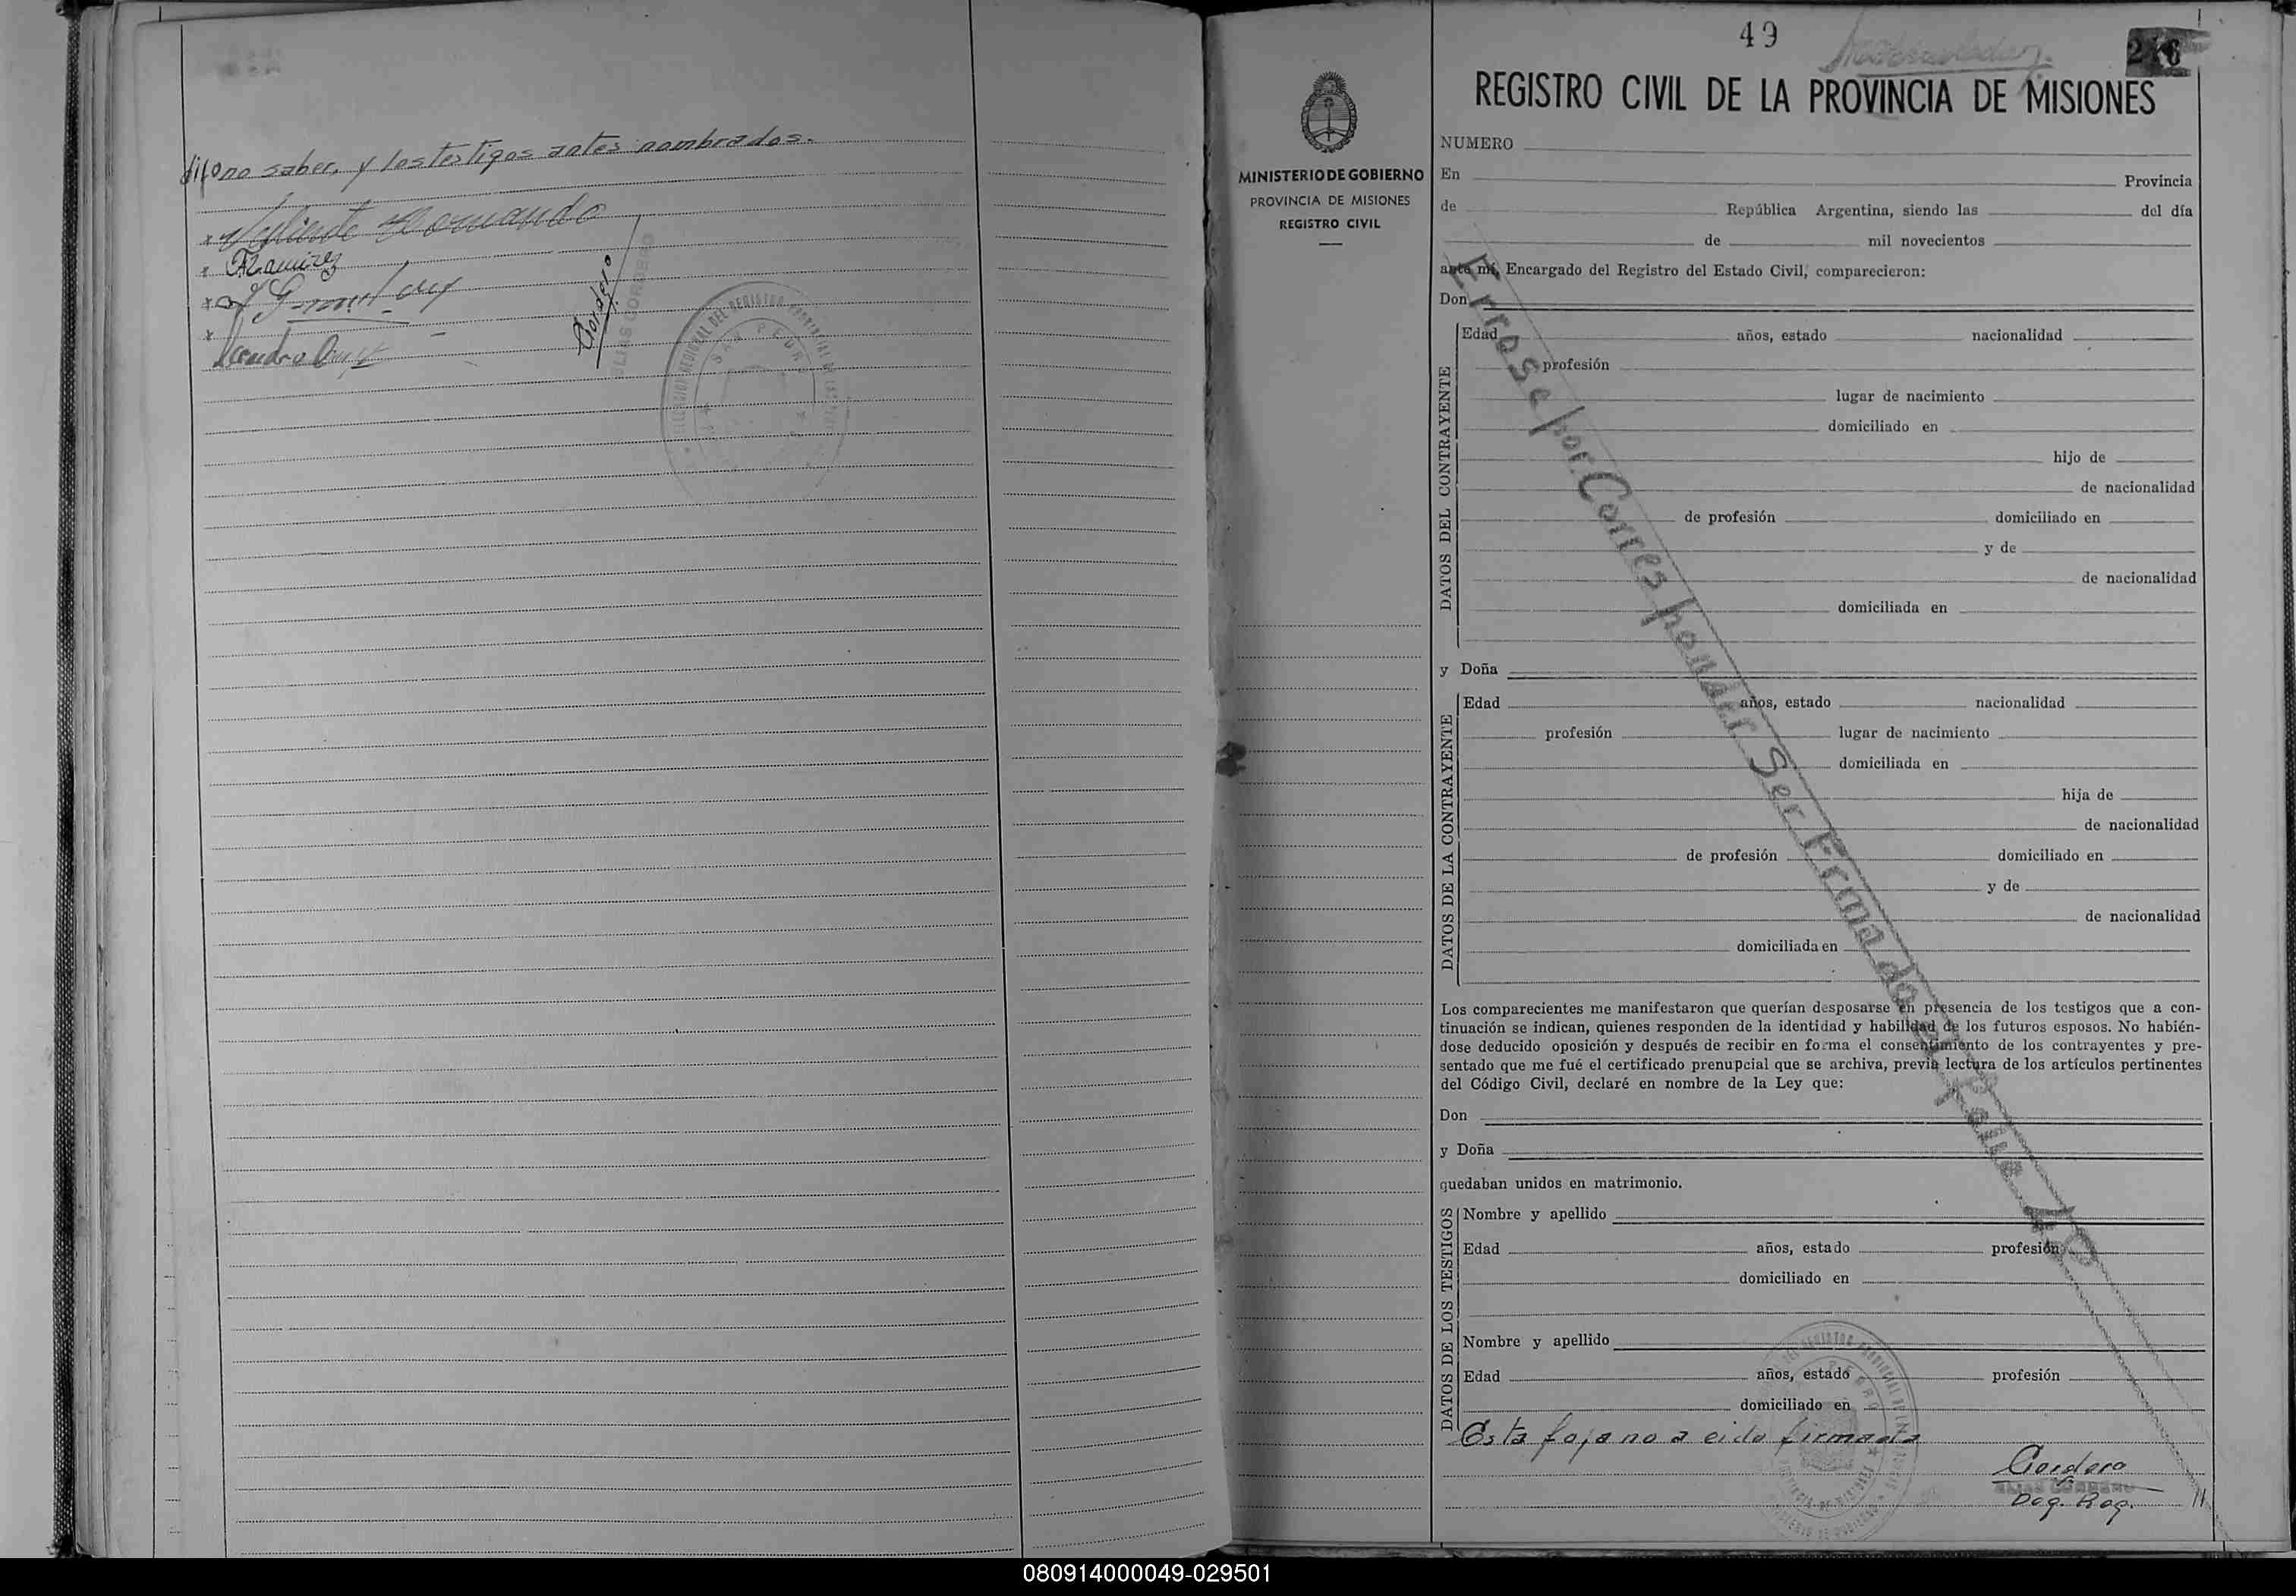 dijo no saber, y los testigos antes nombrados.
Ramirez
Cordero
ELIAS CORDERO
SAN PEDRO
49
MINISTERIO DE GOBIERNO
PROVINCIA DE MISIONES
REGISTRO CIVIL
REGISTRO CIVIL DE LA PROVINCIA DE MISIONES
NUMERO
En Provincia
de República Argentina, siendo las del día
de mil novecientos
ante mí, Encargado del Registro del Estado Civil, comparecieron:
Don
DATOS DEL CONTRAYENTE
Edad años, estado nacionalidad
profesión
lugar de nacimiento
domiciliado en
hijo de
de nacionalidad
de profesión domiciliado en
y de
de nacionalidad
domiciliada en
y Doña
DATOS DE LA CONTRAYENTE
Edad años, estado nacionalidad
profesión lugar de nacimiento
domiciliada en
hija de
de nacionalidad
de profesión domiciliado en
y de
de nacionalidad
domiciliada en
Los comparecientes me manifestaron que querían desposarse en presencia de los testigos que a con-
tinuación se indican, quienes responden de la identidad y habilidad de los futuros esposos. No habién-
dose deducido oposición y después de recibir en forma el consentimiento de los contrayentes y pre-
sentado que me fué el certificado prenupcial que se archiva, previa lectura de los artículos pertinentes
del Código Civil, declaré en nombre de la Ley que:
Don
y Doña
quedaban unidos en matrimonio.
DATOS DE LOS TESTIGOS
Nombre y apellido
Edad años, estado profesión
domiciliado en
Nombre y apellido
Edad años, estado profesión
domiciliado en
Esta foja no a eido firmada
Cordero
ELIAS CORDERO
Deg. Reg.
Errose por Corres ponder Ser
080914000049-029501